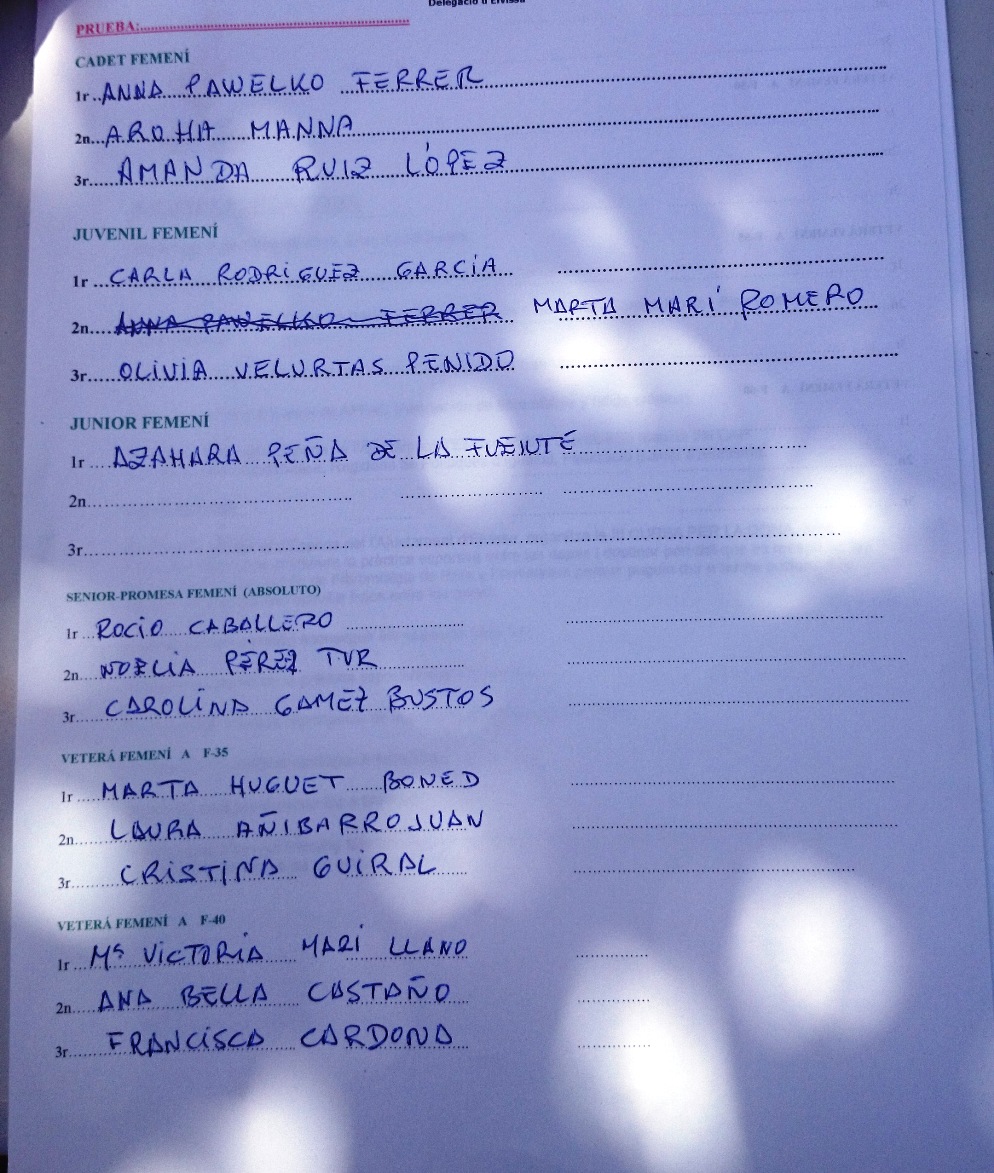 Delegació d'Eivissa
PRUEBA:
CADET FEMENÍ
1r ANNA PAWELKO FERRER
2n AROHA MANNA
3r AMANDA RUIZ LÓPEZ
JUVENIL FEMENÍ
1r CARLA RODRIGUEZ GARCÍA
2n ANNA PAWELKO FERRER MARTA MARÍ ROMERO
3r OLIVIA VELURTAS PENIDO
JUNIOR FEMENÍ
1r AZAHARA PEÑA DE LA FUENTE
2n
3r
SENIOR-PROMESA FEMENÍ (ABSOLUTO)
1r ROCIO CABALLERO
2n NOELIA PÉREZ TUR
3r CAROLINA GAMEZ BUSTOS
VETERÁ FEMENÍ A F-35
1r MARTA HUGUET BONED
2n LAURA AÑIBARRO JUAN
3r CRISTINA GUIRAL
VETERÁ FEMENÍ A F-40
1r Mª VICTORIA MARÍ LLANO
2n ANA BELLA CASTAÑO
3r FRANCISCA CARDONA